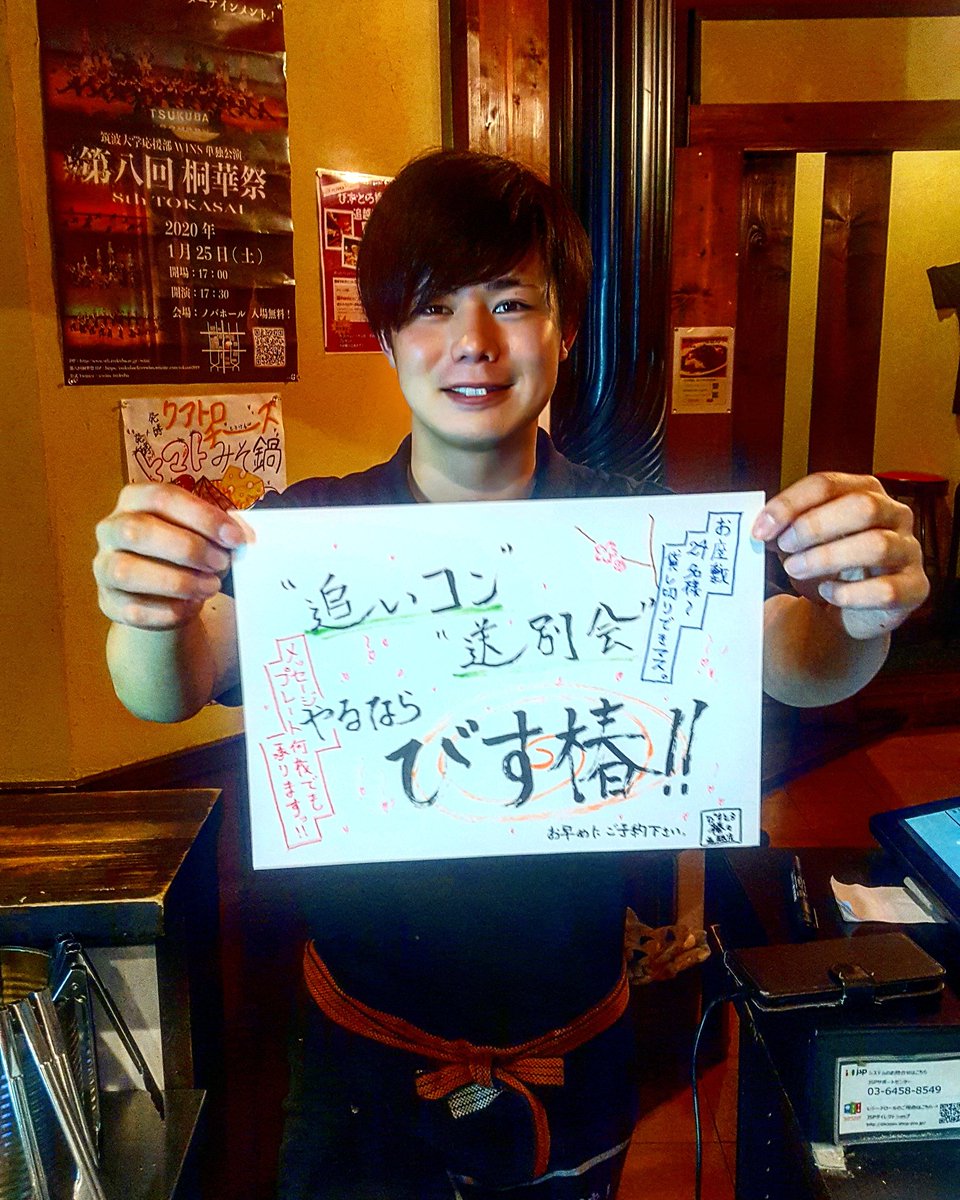 ターテインメント！
TSUKUBA
筑波大学応援部WINS単独公演
第八回 桐華祭
8th TOKASAI
2020年
1月25日(土)
開場：17:00
開演：17:30
会場：ノバホール 入場無料！
クアトロ
チーズ
トマトみそ鍋
"追いコン"
"送別会"
やるなら
びす椿!!
お早めにご予約下さい。
お座敷
24名様〜
貸し切りできマス。
メッセージ
プレート
何枚でも
承ります!!
システムのお問合せはこちら
JSPサポートセンター
03-6458-8549